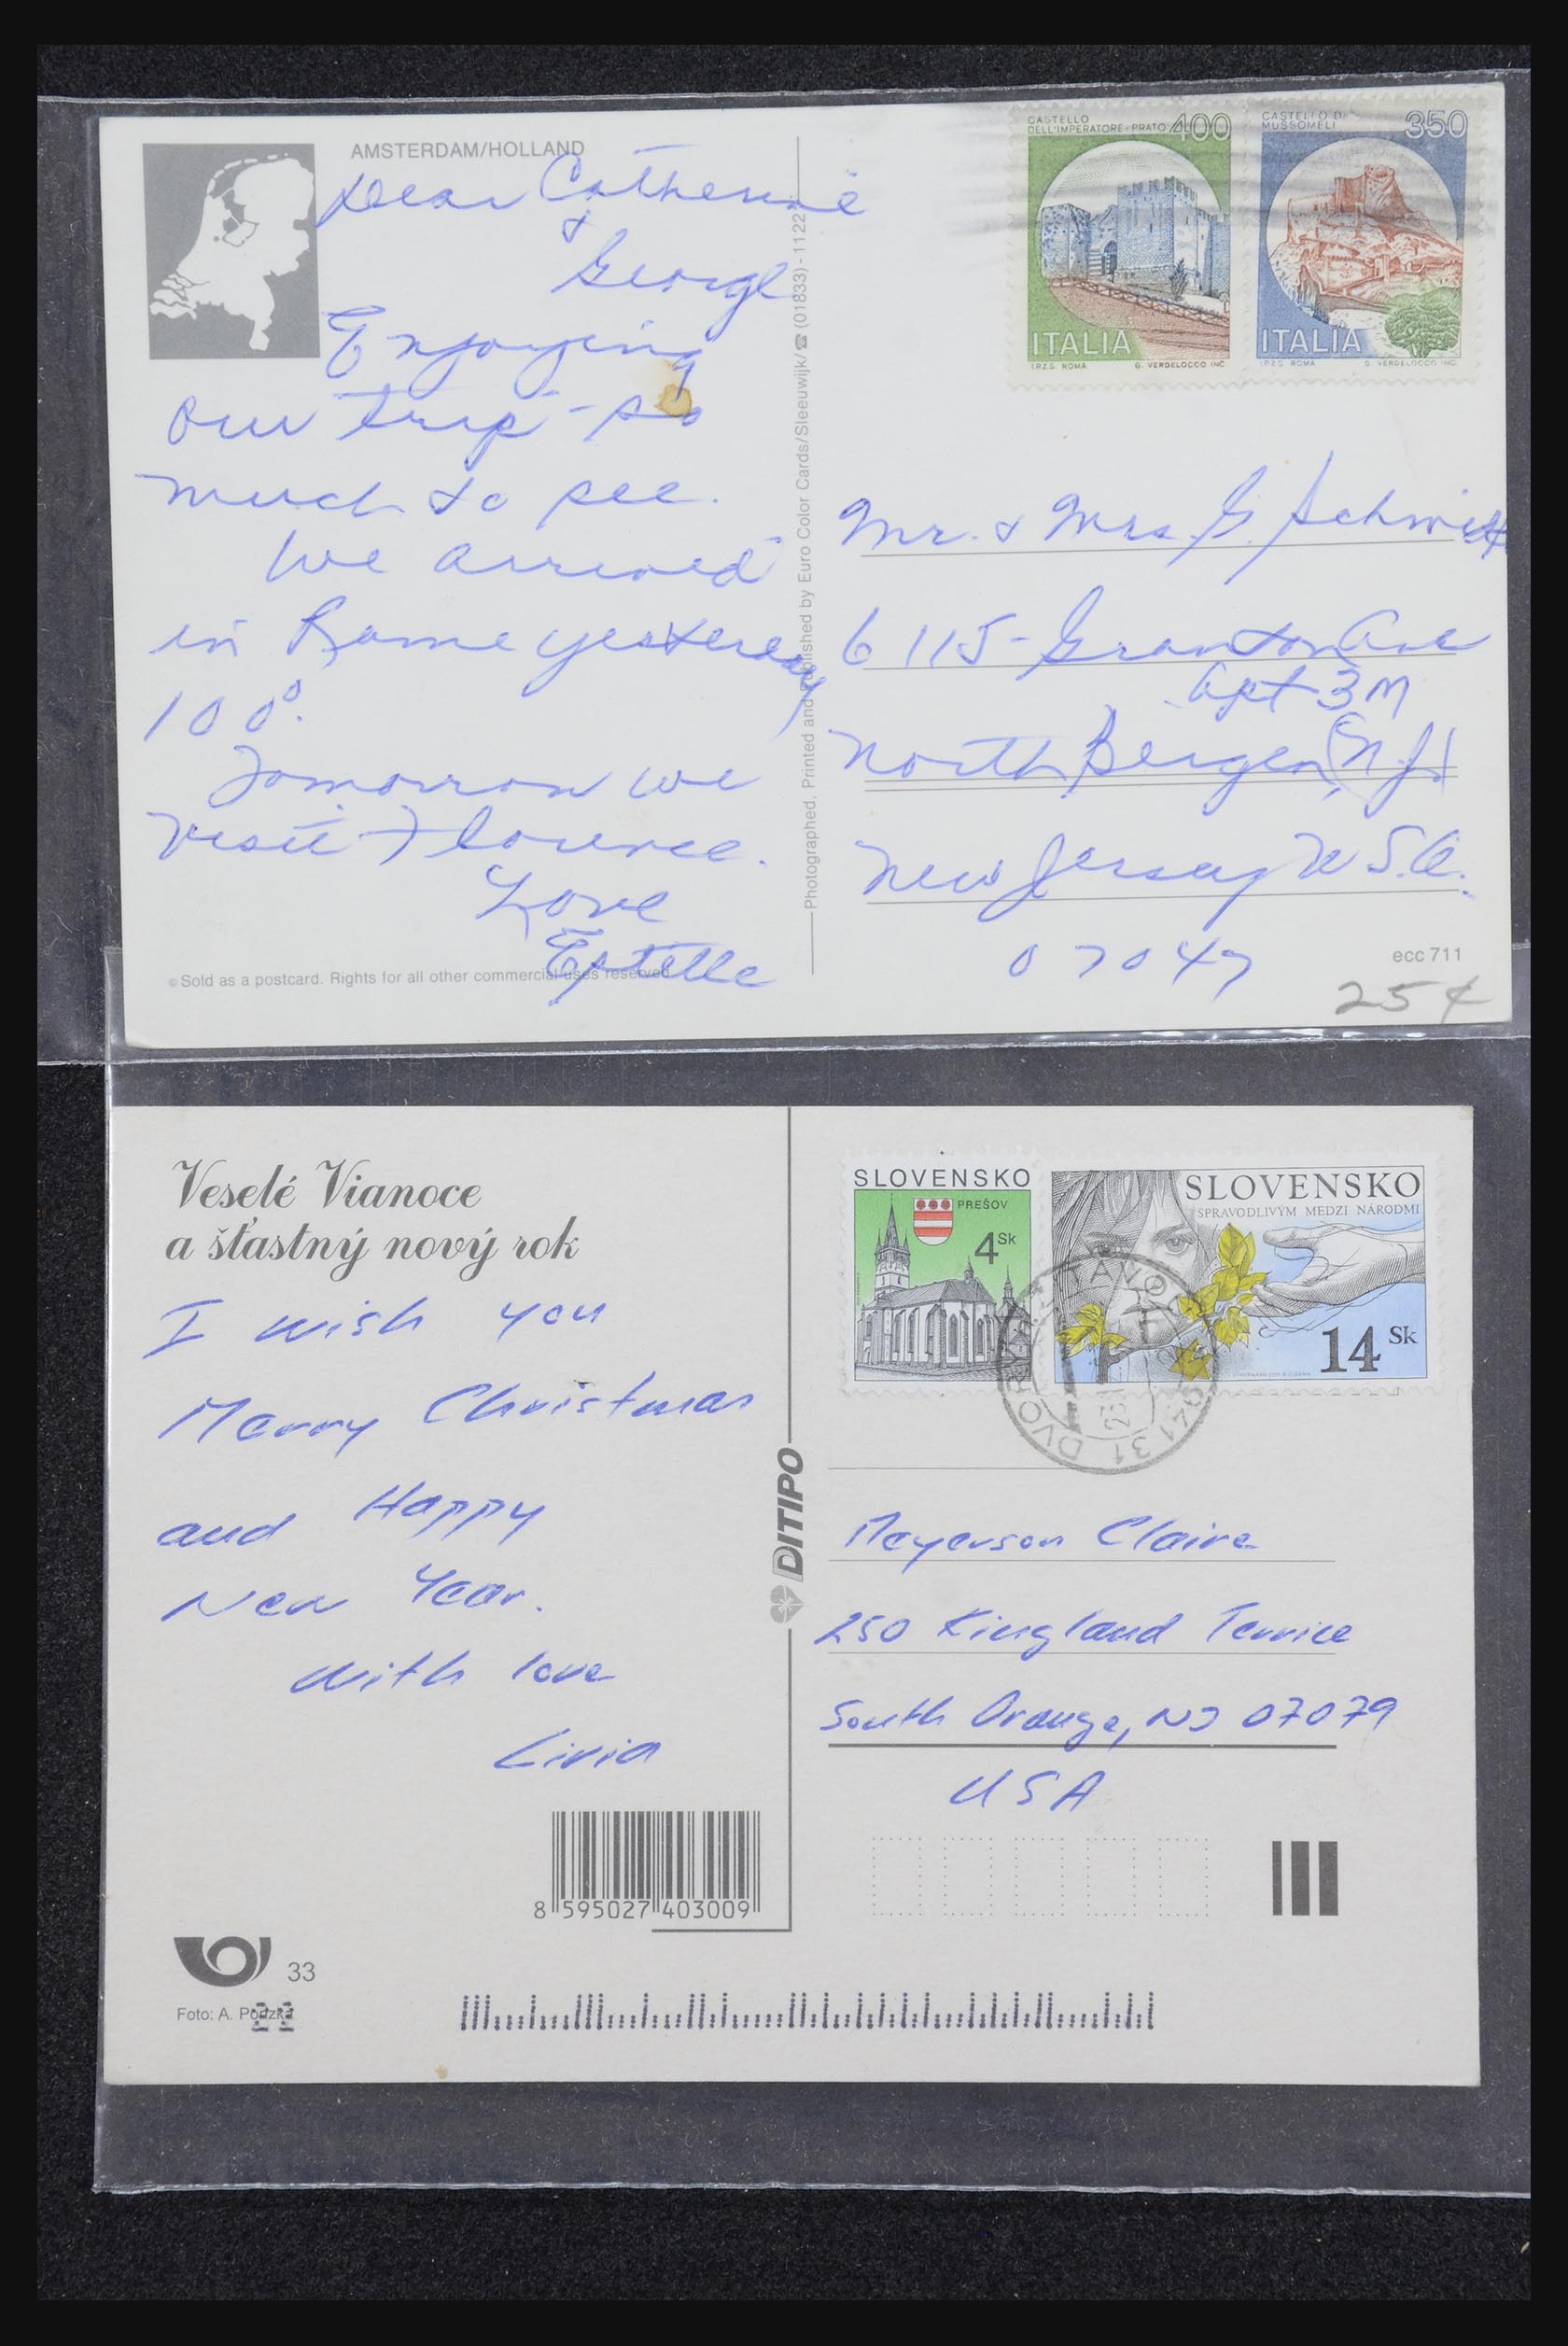 AMSTERDAM/HOLLAND
Dear Catherine
&
George
Enjoying
our trip - so
much to see.
We arrived
in Rome yesterday
100°.
Tomorrow we
visit Florence.
Love
Estelle
© Sold as a postcard. Rights for all other commercial uses reserved
Photographed, Printed and Published by Euro Color Cards/Sleeuwijk/☎ (01833) - 1122
CASTELLO
DELL'IMPERATORE - PRATO 400
ITALIA
I.P.Z.S. ROMA G. VERDELOCCO INC.
CASTELLO DI
MUSSOMELI 350
ITALIA
I.P.Z.S. ROMA G. VERDELOCCO INC.
Mr. & Mrs. G. Schmitt
6115 - Granton Ave
Apt 3M
North Bergen, (N.J.)
New Jersey U.S.A.
07047
ecc 711
25¢
Veselé Vianoce
a šťastný nový rok
I wish you
Merry Christmas
and Happy
New Year.
With love
Livia
8 595027 403009
33
Foto: A. Podzka
22
DITIPO
SLOVENSKO
PREŠOV
4 Sk
SLOVENSKO
SPRAVODLIVÝM MEDZI NÁRODMI
14 Sk
941 31 DVORY
Meyerson Claire
250 Kingland Terrice
South Orange, NJ 07079
USA